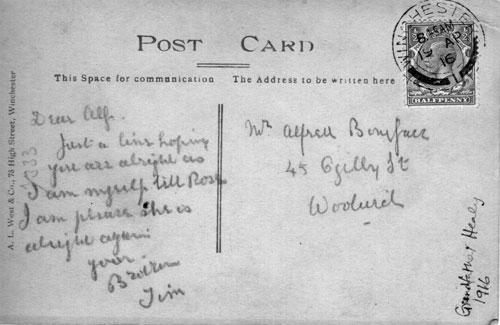 POST CARD
This Space for communication
The Address to be written here
WINCHESTER
8.15AM
AP
16
HALFPENNY
A. L. West & Co., 73 High Street, Winchester
Dear Alf.
Just a line hoping
you are alright as
I am myself till Rose
I am please she is
alright again
your
Brother
Jim
Mr Alfred Boniface
45 Ogilby St
Woolwich
Grandfather Healy
1916